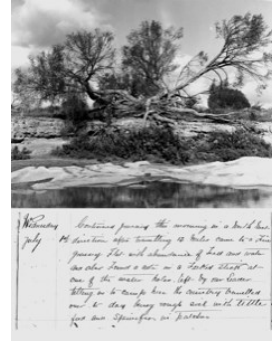 Wednesday Continued journey this morning in a North East
July direction after travelling 10 miles came to a fine
grassy flat with abundance of feed and water
and also found a note in a Forked Stick at
one of the water holes left by our leader
telling us to camp here the country travelled
over to day being rough with little
feed and Spinifex in patches